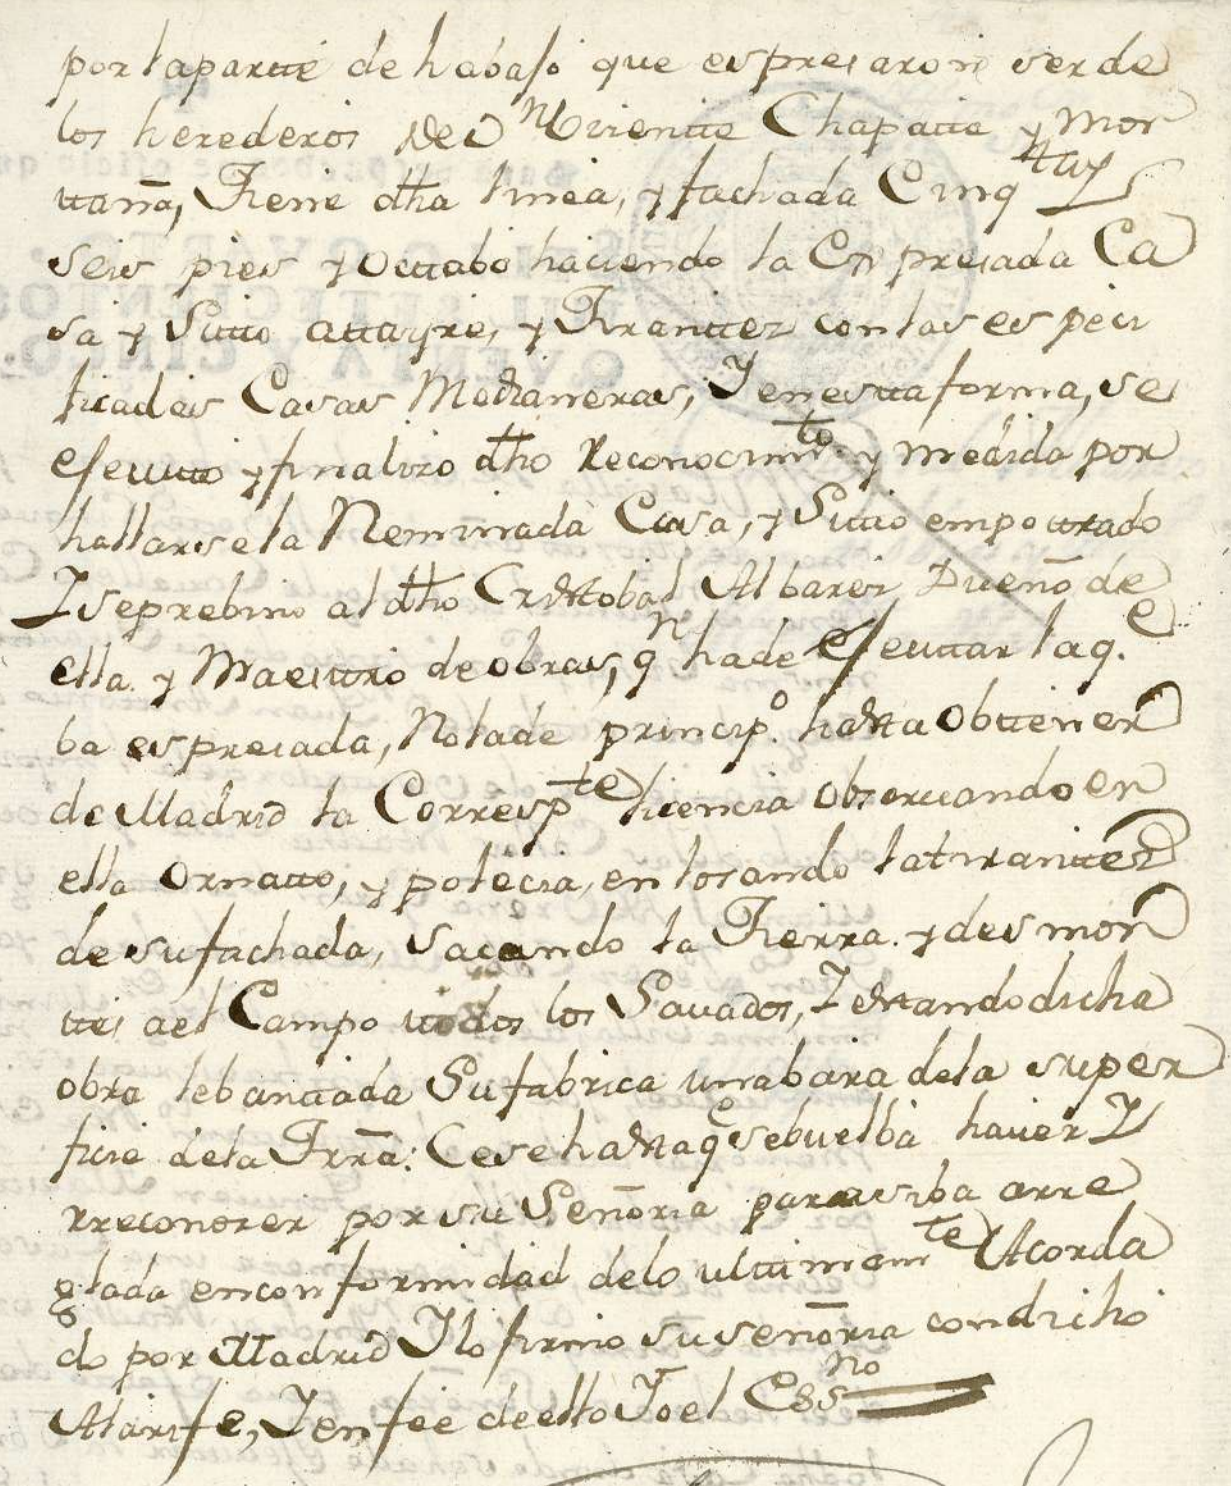 por la parte de habajo que expresaron ser de
los herederos de Dn Vizente Chapatte y mon
tana, tiene dha linea, y fachada Cinqtay
seis pies y octtabo haciendo la Expresada Ca
sa y Sittio attayre, y Tiranttez con las especi
ficadas Casas Medianeras, Y en estta forma, se
ejecutto y finalizo dho Reconocimto y medida por
hallarse la Nominada Casa, y Sittio empottrado
Y se prebino al dho Cristobal Albarez Dueño de
ella y Maesttro de obras, qn ha de ejecuttar la q.e
ba expresada, No la de princip.o hasta obttener
de Madrid la Correspte licencia observando en
ella Ornatto, y polecia, enlosando la tiranttez
de su fachada, sacando la Tierra y desmon
ttes ael Campo ttodos los Savados, Y estando dicha
obra lebanttada Su fabrica una bara de la super
ficie de la Trrã: Cese hasta qe se buelba haver Y
rreconozer por su Señoria para si ba arre
glada en conformidad de lo ulttimamte Acorda
do por Madrid Y lo firmo su señoria con dicho
Alarife, Y en fee de ello Yo el Essno